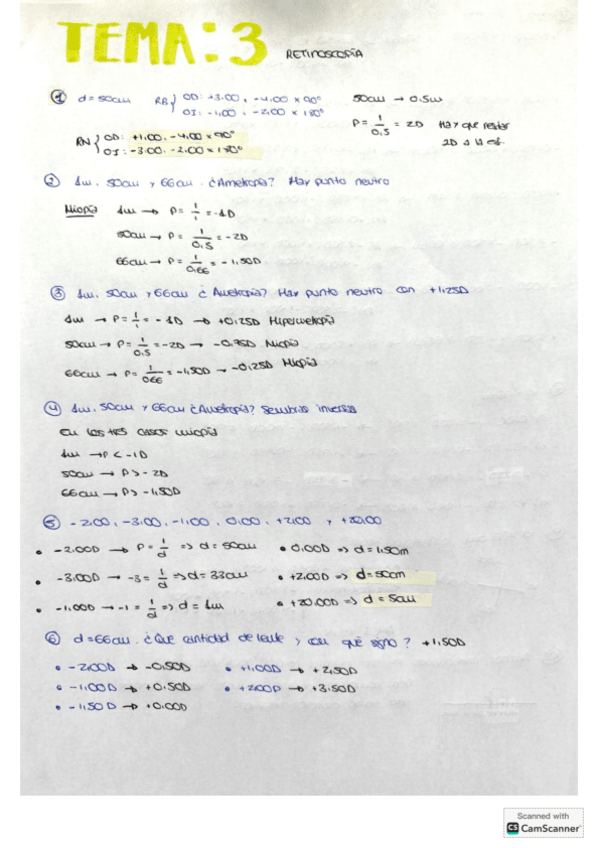 TEMA: 3 RETINOSCOPÍA
① d = 50cm RB { OD: +3.00, -4.00 x 90° OI: -1.00, -2.00 x 180° 50cm → 0.5m
P = 1/0.5 = 2D Hay que restar 2D a la esf.
RN { OD: +1.00, -4.00 x 90° OI: -3.00, -2.00 x 180°
② 1m, 50cm y 66cm. ¿Ametropía? Hay punto neutro
Miopía 1m → P = 1/1 = -1D
50cm → P = 1/0.5 = -2D
66cm → P = 1/0.66 = -1,50D
③ 1m, 50cm y 66cm ¿Ametropía? Hay punto neutro con +1.25D
1m → P = 1/1 = -1D → +0.25D Hipermetropía
50cm → P = 1/0.5 = -2D → -0.75D Miopía
66cm → P = 1/066 = -1,50D → -0.25D Miopía
④ 1m, 50cm y 66cm ¿Ametropía? Sombras inversas
En los tres casos miopía
1m → P < -1D
50cm → P > -2D
66cm → P > -1,50D
⑤ -2.00, -3.00, -1.00, 0.00, +2.00 y +20.00
• -2.00D → P = 1/d => d = 50cm • 0.00D => d = 1,50m
• -3.00D → -3 = 1/d => d = 33cm • +2.00D => d = 50cm
• -1,00D → -1 = 1/d => d = 1m • +20.00D => d = 5cm
⑥ d = 66cm. ¿Que cantidad de lente y con qué signo? +1,50D
• -2.00D → -0.50D • +1.00D → +2,50D
• -1.00D → +0.50D • +2.00D → +3.50D
• -1,50D → +0.00D
Scanned with
CS CamScanner